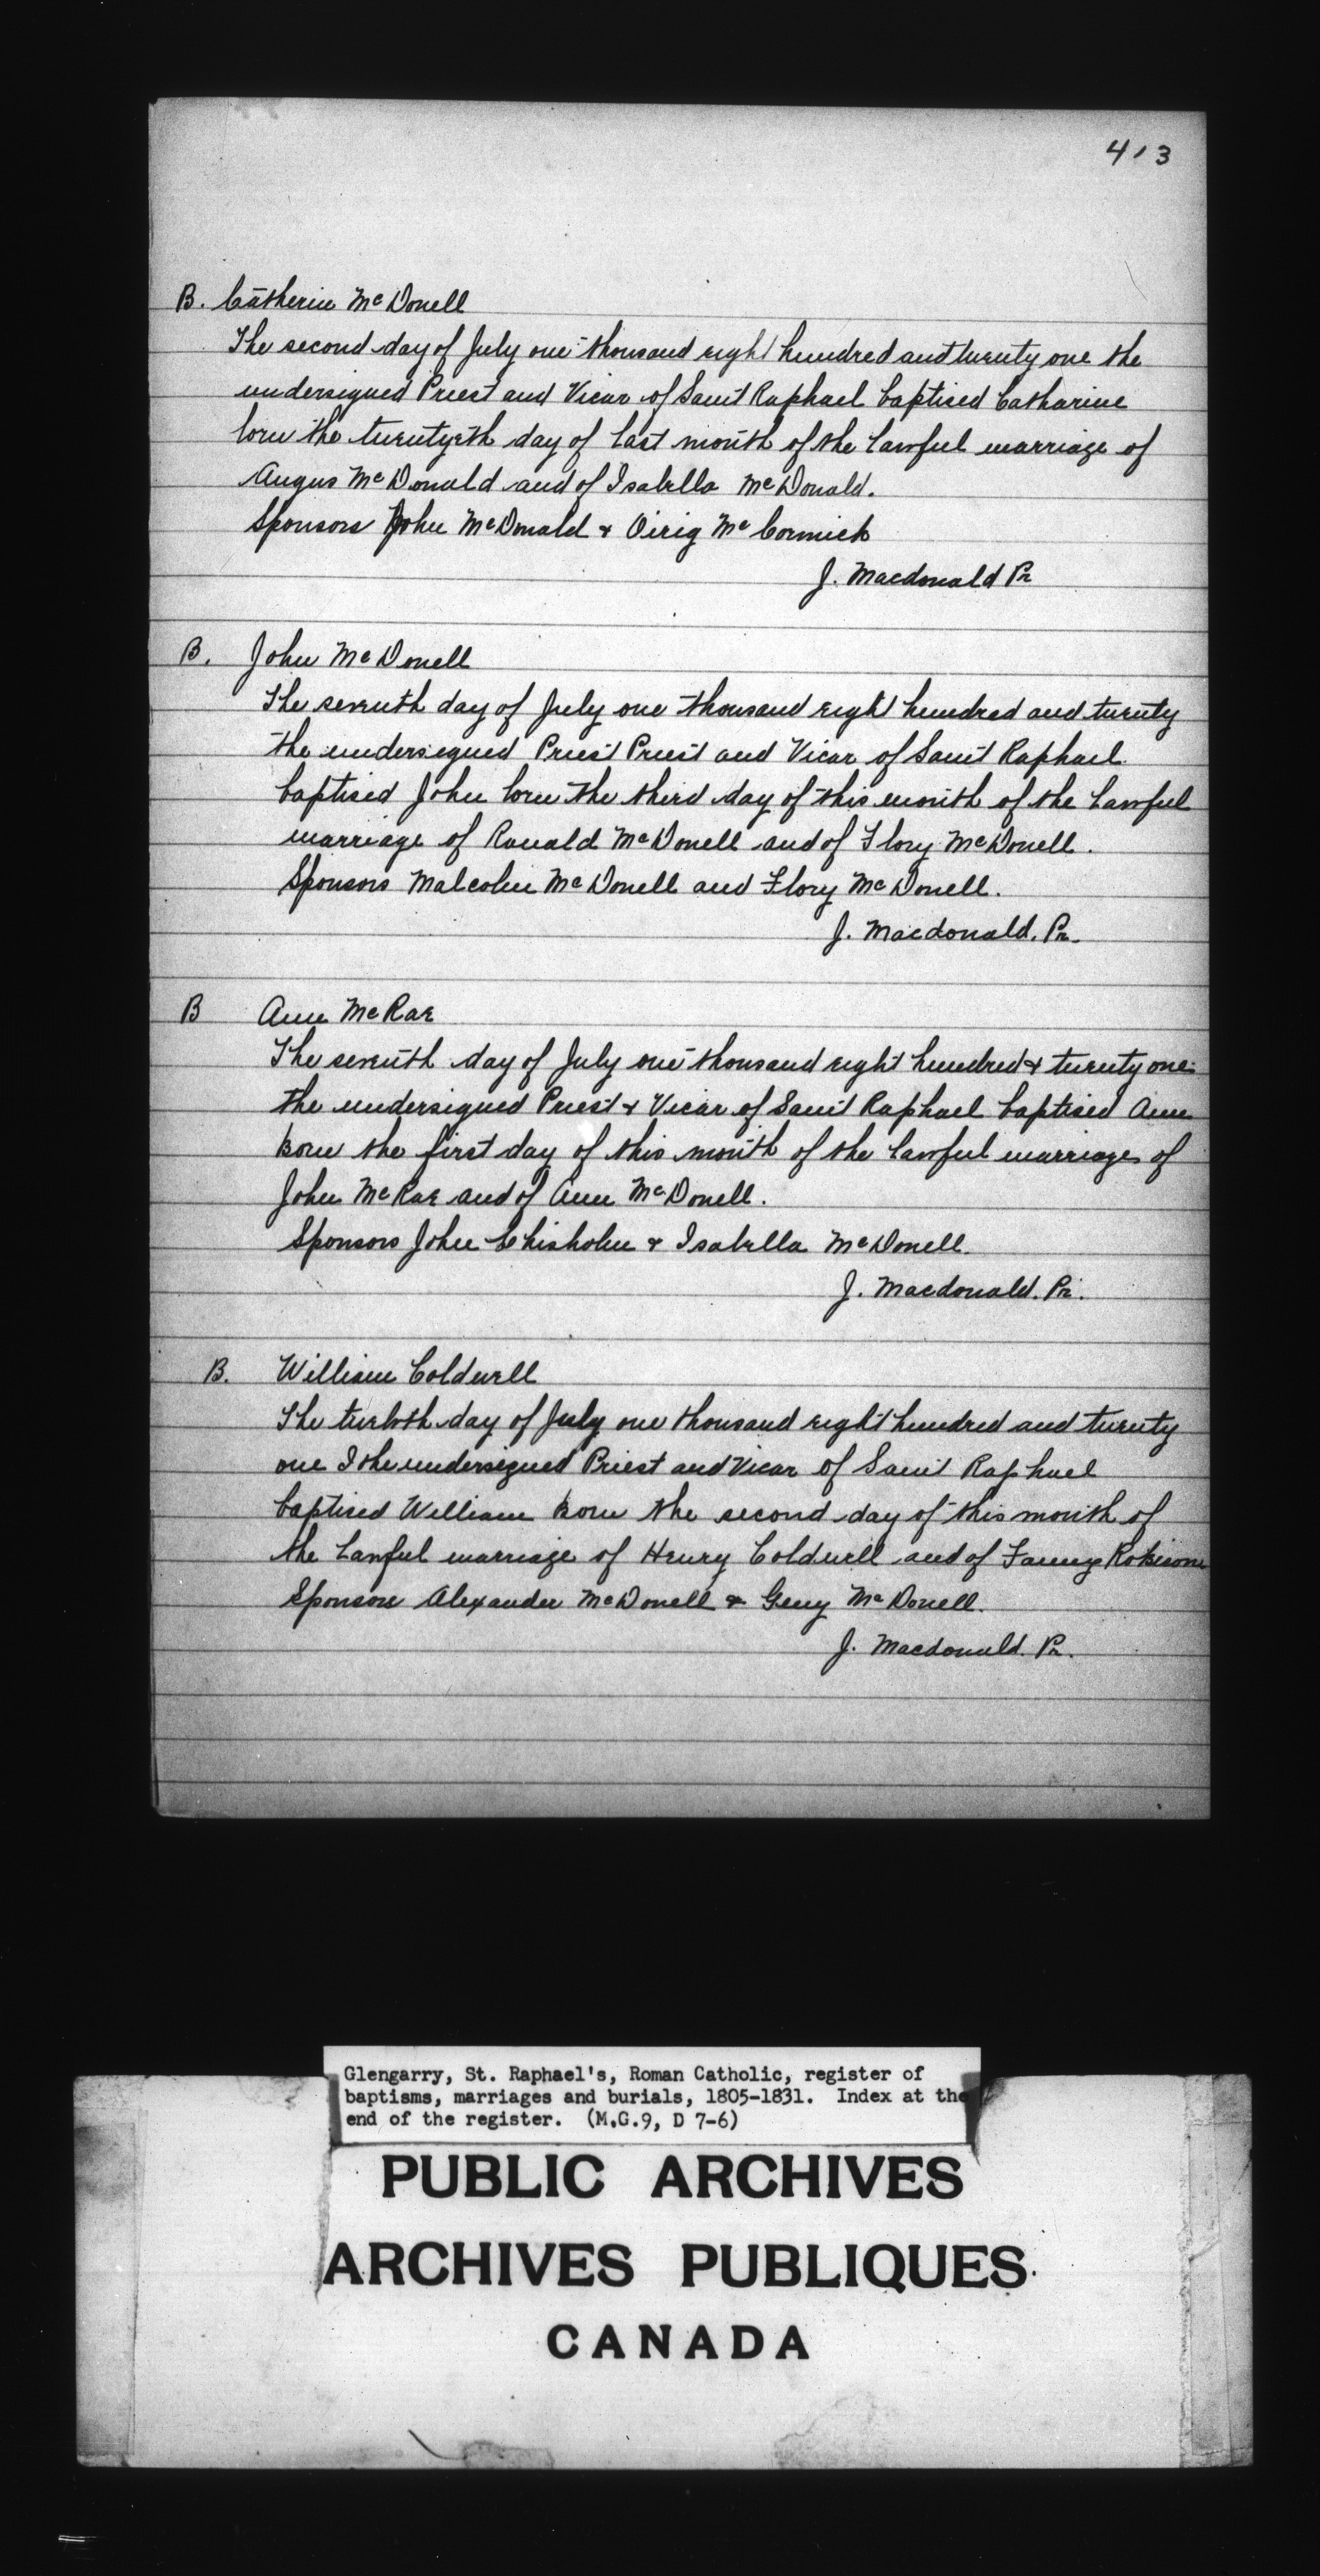 413
B. Catherine McDonell
The second day of July one thousand eight hundred and twenty one the
undersigned Priest and Vicar of Saint Raphael baptised Catharine
born the twentyeth day of last month of the lawful marriage of
Angus McDonald and of Isabella McDonald.
Sponsors John McDonald & Oirig McCormick
J. Macdonald Pr
B. John McDonell
The seventh day of July one thousand eight hundred and twenty
the undersigned Priest Priest and Vicar of Saint Raphael
baptised John born the third day of this month of the lawful
marriage of Ranald McDonell and of Flory McDonell.
Sponsors Malcolm McDonell and Flory McDonell.
J. Macdonald. Pr.
B Ann McRae
The seventh day of July one thousand eight hundred & twenty one
the undersigned Priest & Vicar of Saint Raphael baptised Ann
born the first day of this month of the lawful marriage of
John McRae and of Ann McDonell.
Sponsors John Chisholm & Isabella McDonell.
J. Macdonald. Pr.
B. William Coldwell
The twelvth day of July one thousand eight hundred and twenty
one I the undersigned Priest and Vicar of Saint Raphael
baptised William born the second day of this month of
the lawful marriage of Henry Coldwell and of Fanny
Sponsors Alexander McDonell & Geny McDonell.
J. Macdonald. Pr.
Glengarry, St. Raphael's, Roman Catholic, register of
baptisms, marriages and burials, 1805-1831. Index at the
end of the register. (M.G.9, D 7-6)
PUBLIC ARCHIVES
ARCHIVES PUBLIQUES
CANADA